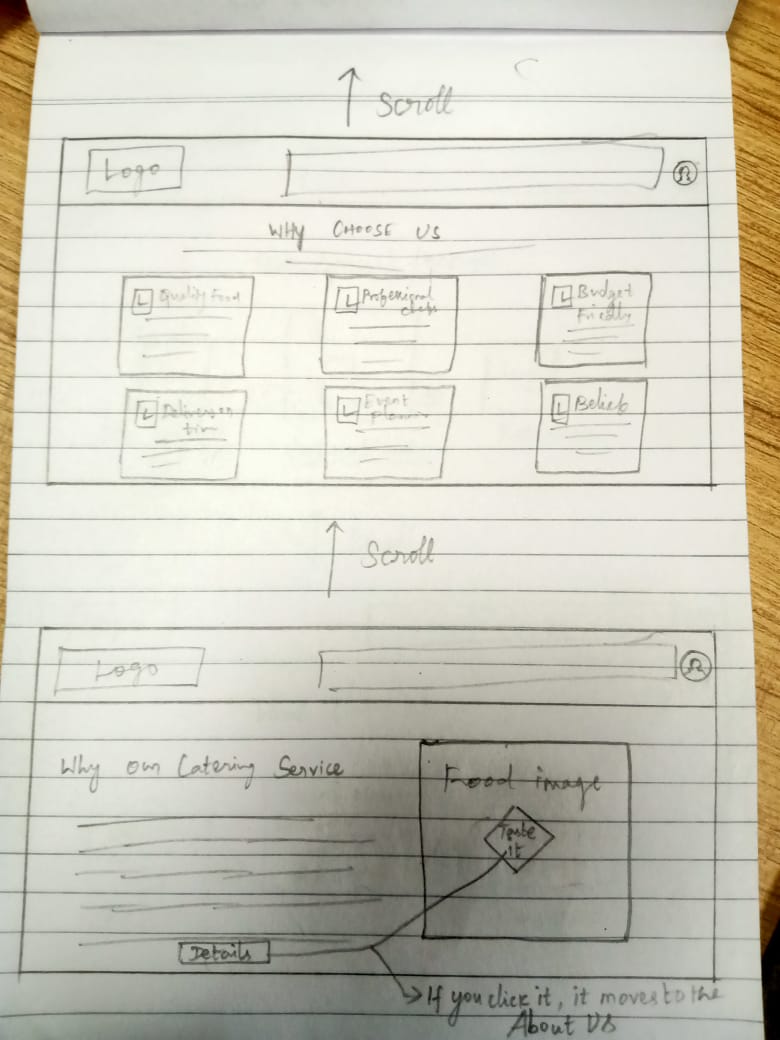 Scroll
Logo
WHY CHOOSE US
Quality Food
Professional
chefs
Budget
Friendly
Deliver on
time
Event
Belief
Scroll
Logo
Why our Catering Service
Food image
Taste
it
Details
If you click it, it moves to the
About US